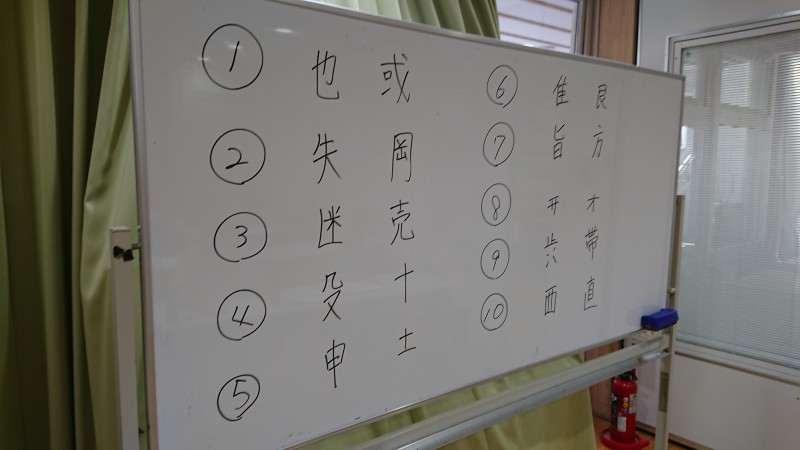 ① 也 或
② 失 岡
③ 迷 売
④ 殳 十
⑤ 申 土
⑥ 隹 艮
⑦ 旨 方
⑧ 开 オ
⑨ 帯
⑩ 西 直